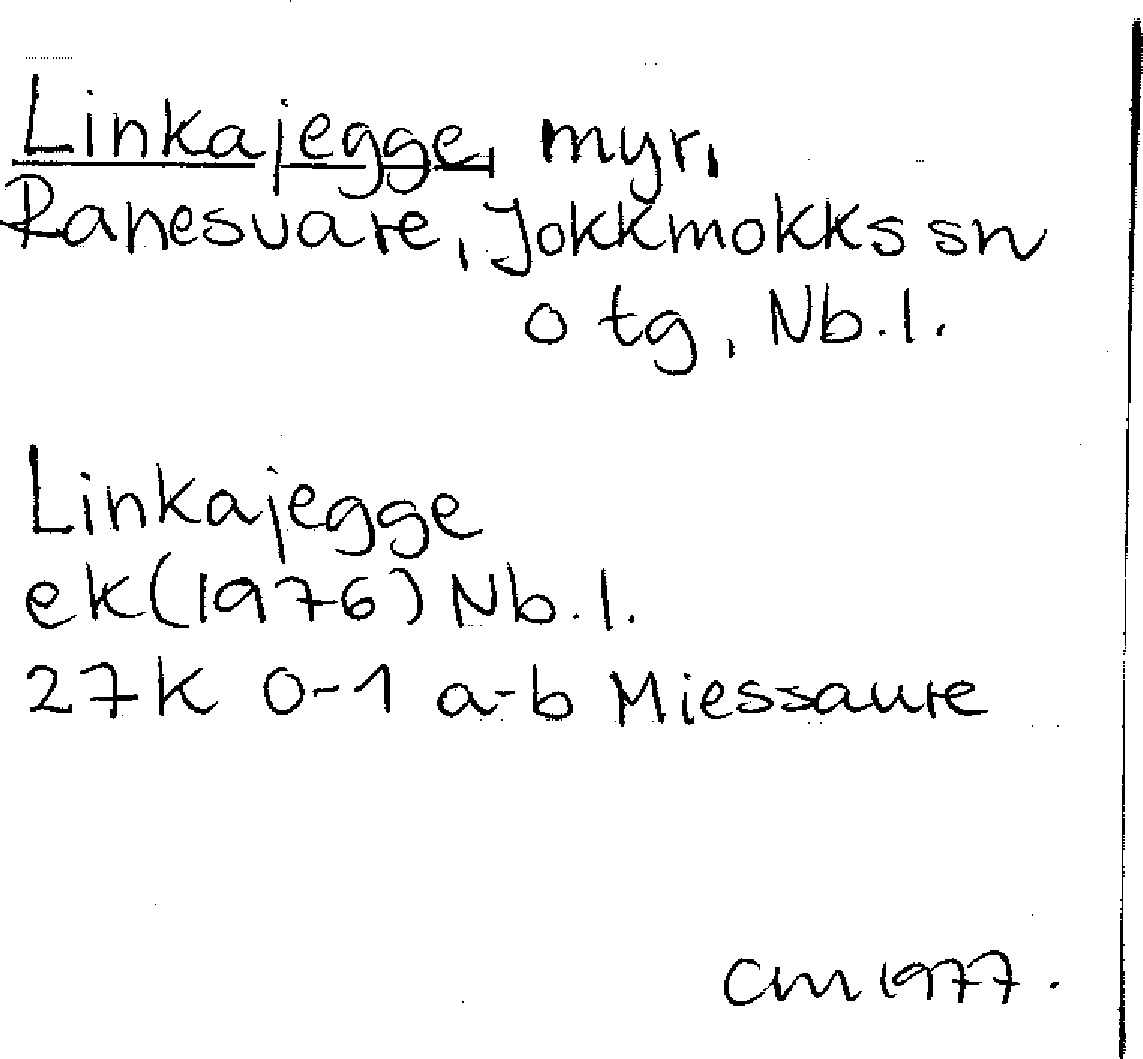 Linkajegge, myr,
Ranesvare, Jokkmokks sn
o tg, Nb.l.
Linkajegge
ek(1976) Nb.l.
27K 0-1 a-b Miessaure
CM 1977.